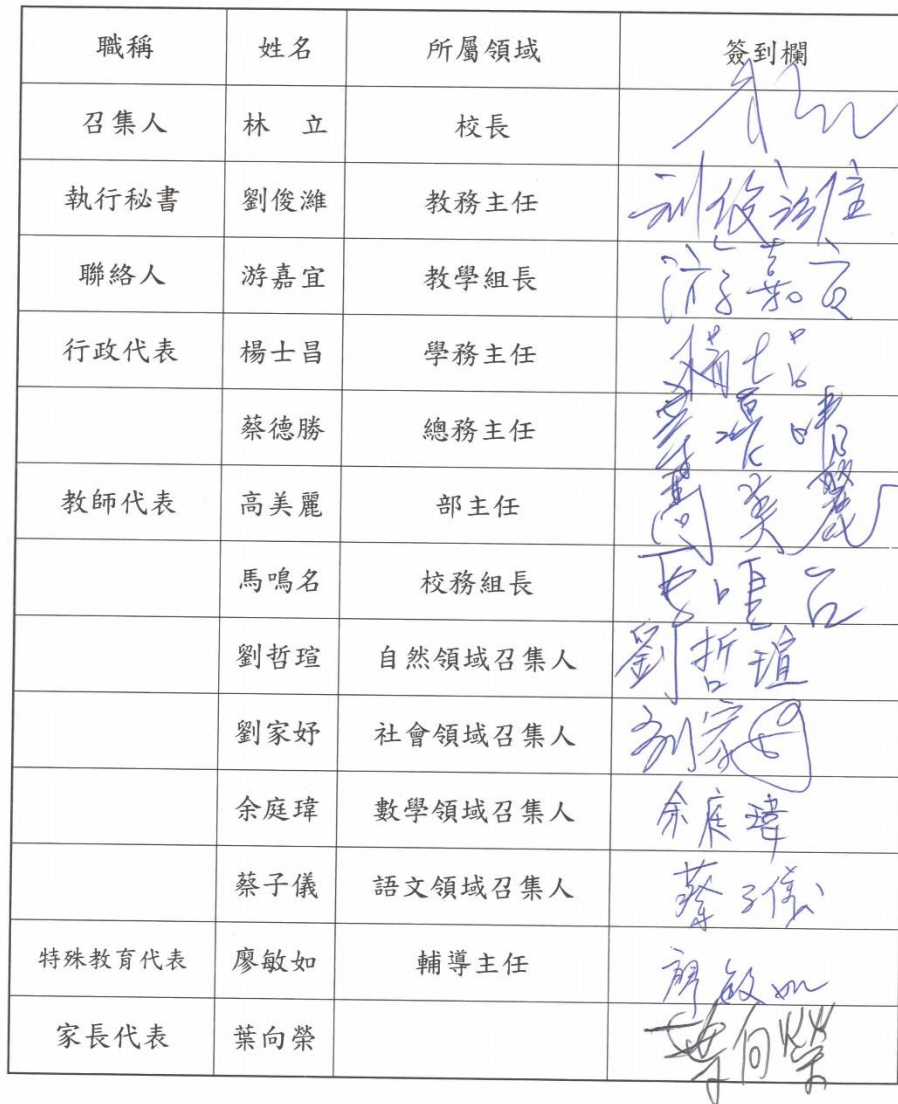 職稱 姓名 所屬領域 簽到欄
召集人 林 立 校長
執行秘書 劉俊濰 教務主任 刘俊濰
聯絡人 游嘉宜 教學組長 游嘉宜
行政代表 楊士昌 學務主任 楊士昌
蔡德勝 總務主任
教師代表 高美麗 部主任 高美麗
馬鳴名 校務組長 馬鳴名
劉哲瑄 自然領域召集人 劉哲瑄
劉家妤 社會領域召集人 劉家妤
余庭瑋 數學領域召集人 余庭瑋
蔡子儀 語文領域召集人 蔡子儀
特殊教育代表 廖敏如 輔導主任 廖敏如
家長代表 葉向榮 葉向榮